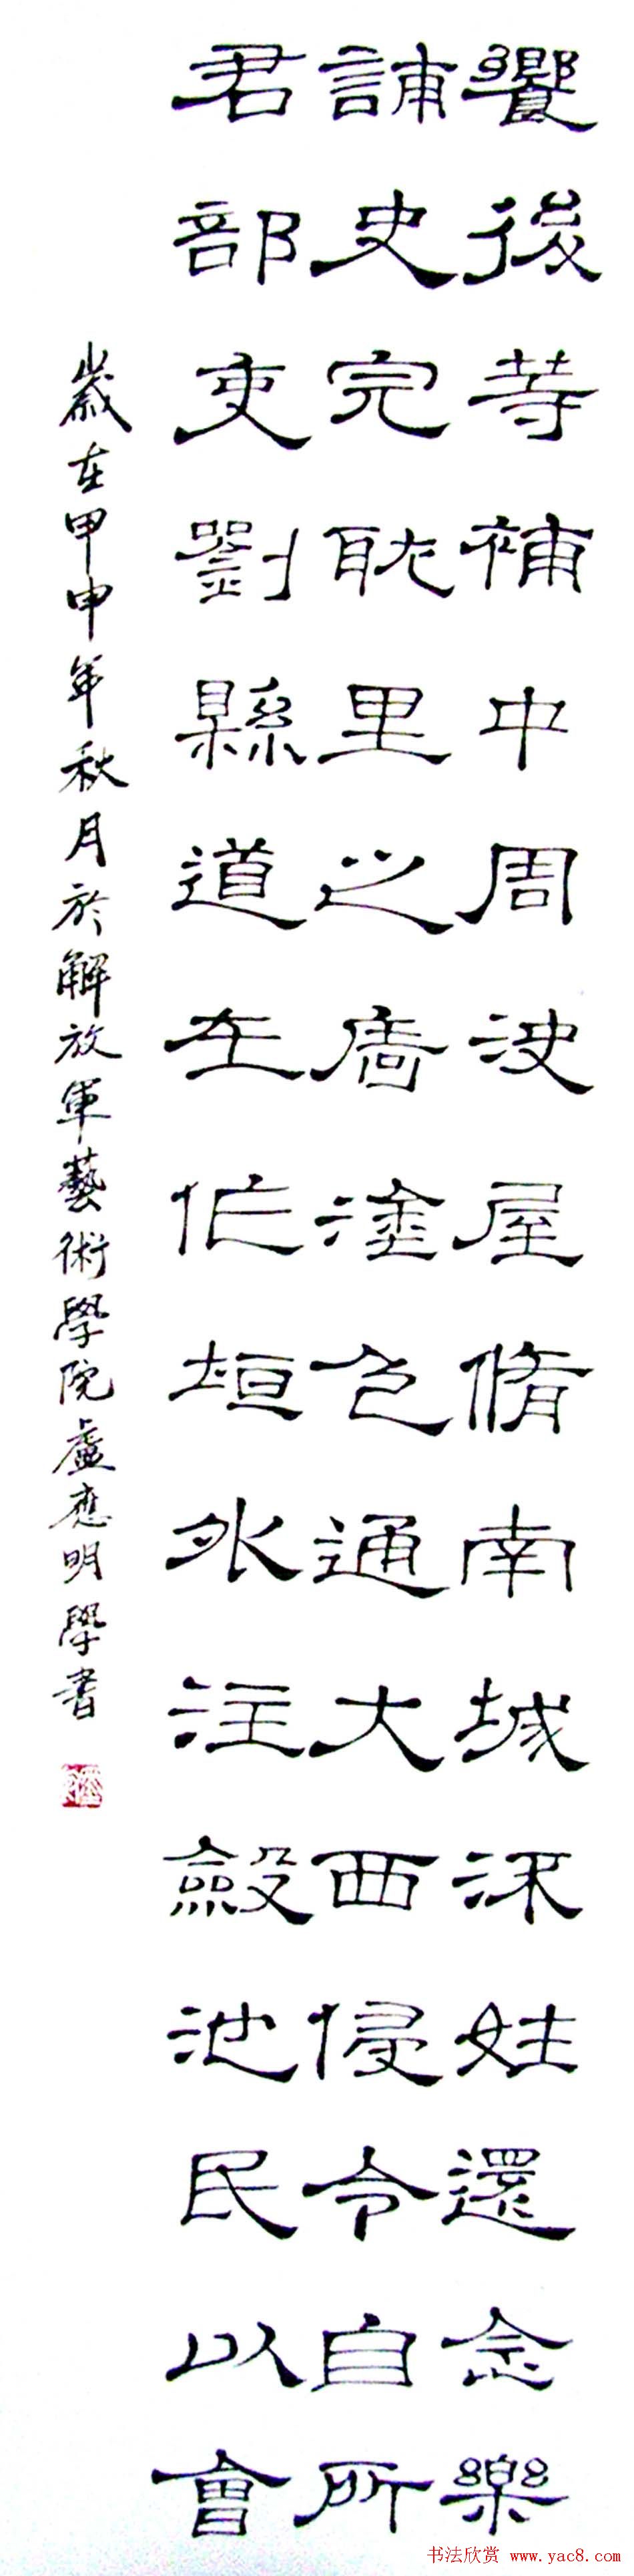 饗後菷補中周泱屋脩南城沭姓還念樂
誧史完耽里之啇塗色通大西侵令自所
君部吏劉縣道在伫垣外注斂池民以會
歲在甲申年秋月於解放軍藝術學院盧應明學書
书法欣赏 www.yac8.com